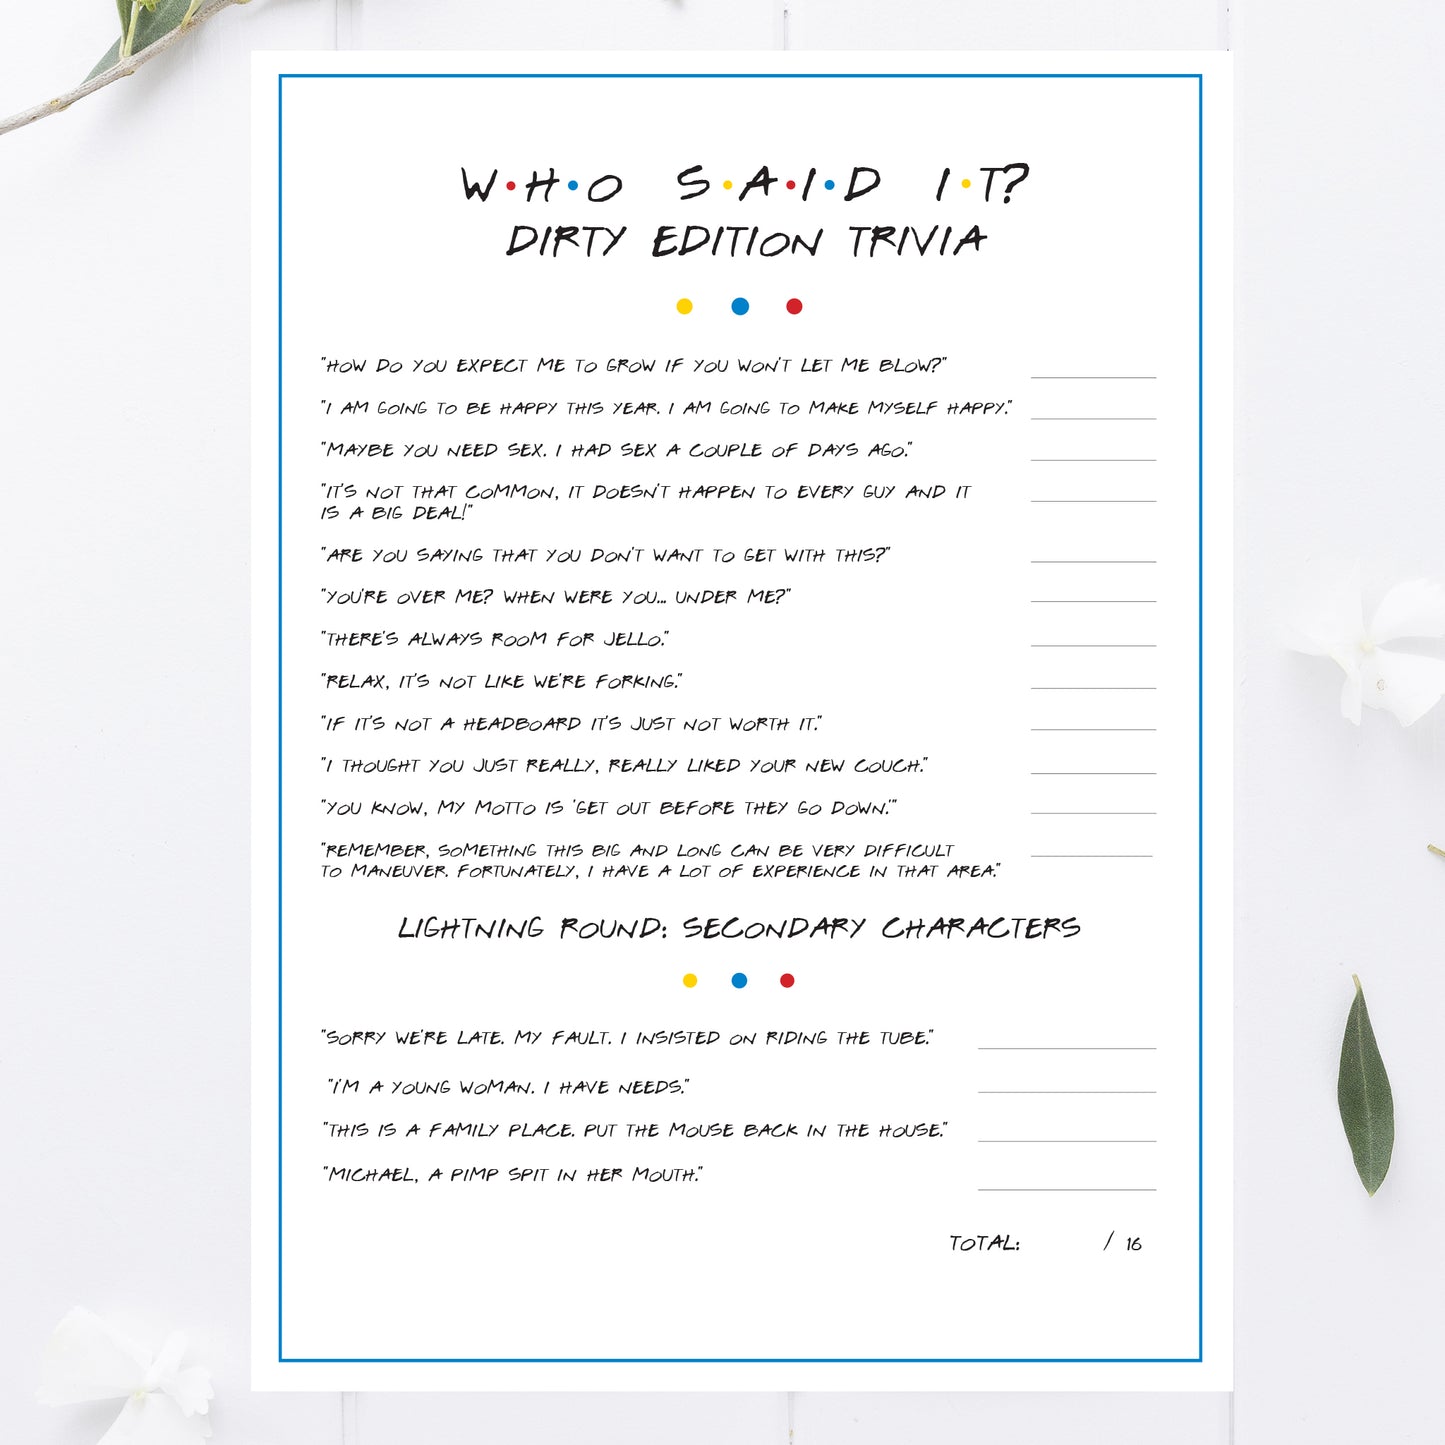 W•H•O S•A•I•D I•T?
DIRTY EDITION TRIVIA
"HOW DO YOU EXPECT ME TO GROW IF YOU WON'T LET ME BLOW?"
"I AM GOING TO BE HAPPY THIS YEAR. I AM GOING TO MAKE MYSELF HAPPY."
"MAYBE YOU NEED SEX. I HAD SEX A COUPLE OF DAYS AGO."
"IT'S NOT THAT COMMON, IT DOESN'T HAPPEN TO EVERY GUY AND IT
IS A BIG DEAL!"
"ARE YOU SAYING THAT YOU DON'T WANT TO GET WITH THIS?"
"YOU'RE OVER ME? WHEN WERE YOU... UNDER ME?"
"THERE'S ALWAYS ROOM FOR JELLO."
"RELAX, IT'S NOT LIKE WE'RE FORKING."
"IF IT'S NOT A HEADBOARD IT'S JUST NOT WORTH IT."
"I THOUGHT YOU JUST REALLY, REALLY LIKED YOUR NEW COUCH."
"YOU KNOW, MY MOTTO IS 'GET OUT BEFORE THEY GO DOWN.'"
"REMEMBER, SOMETHING THIS BIG AND LONG CAN BE VERY DIFFICULT
TO MANEUVER. FORTUNATELY, I HAVE A LOT OF EXPERIENCE IN THAT AREA."
LIGHTNING ROUND: SECONDARY CHARACTERS
"SORRY WE'RE LATE. MY FAULT. I INSISTED ON RIDING THE TUBE."
"I'M A YOUNG WOMAN. I HAVE NEEDS."
"THIS IS A FAMILY PLACE. PUT THE MOUSE BACK IN THE HOUSE."
"MICHAEL, A PIMP SPIT IN HER MOUTH."
TOTAL: / 16